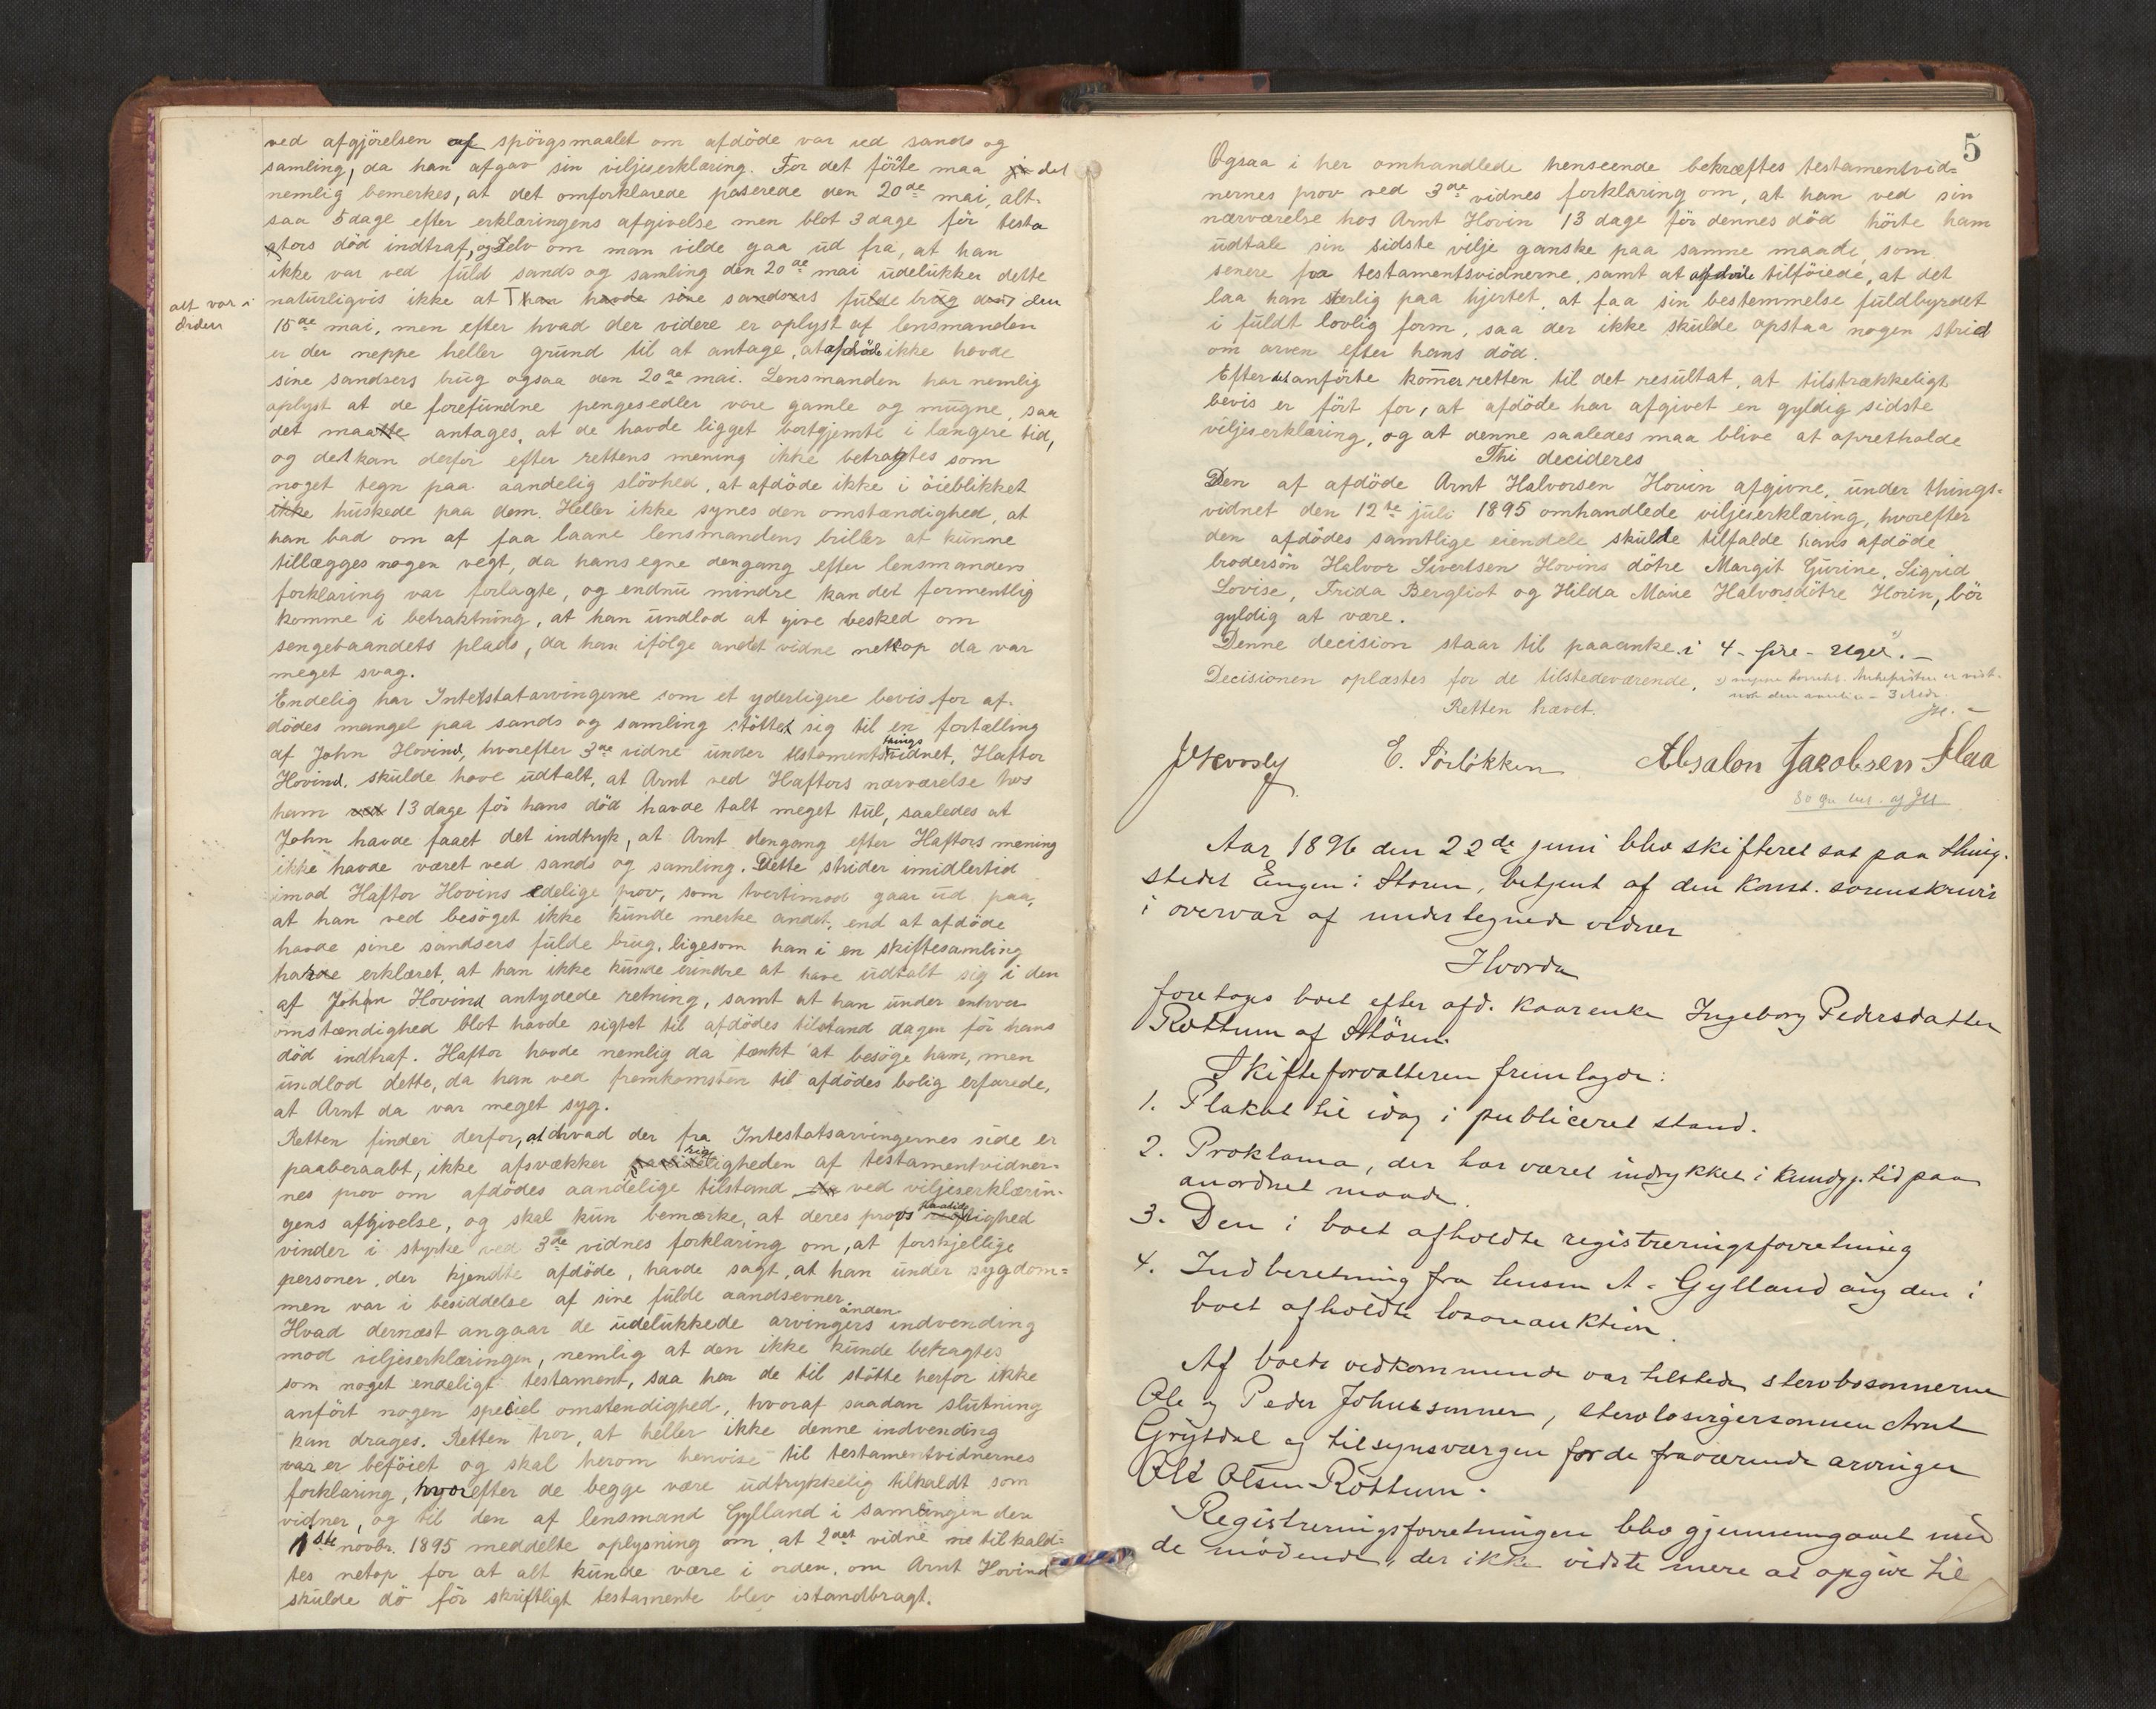 ved afgjörelsen af spörgsmaalet om afdöde var ved sands og
samling, da han afgav sin viljeserklæring. For det förte maa det
nemlig bemerkes, at det omforklarede paserede den 20de mai, alt-
saa 5 dage efter erklæringens afgivelse men blot 3 dage för testa
ators död indtraf, og selv om man vilde gaa ud fra, at han
ikke var ved fuld sands og samling den 20de mai udelukker dette
alt var i
orden
naturligvis ikke at han havde sine sandsers fulde brug den
15de mai, men efter hvad der videre er oplyst af lensmanden
er der neppe heller grund til at antage, at afdöde ikke havde
sine sandsers brug ogsaa den 20de mai. Lensmanden har nemlig
oplyst at de forefundne pengesedler vare gamle og mugne, saa
det maatte antages, at de havde ligget bortgjemte i længere tid,
og det kan derfor efter rettens mening ikke betragtes som
noget tegn paa aandelig slövhed, at afdöde ikke i öieblikket
ikke huskede paa dem. Heller ikke synes den omstændighed, at
han bad om af faa laane lensmandens briller at kunne
tillægges nogen vegt, da hans egne dengang efter lensmandens
forklaring var forlagte, og endnu mindre kan det formentlig
komme i betraktning, at han undlod at give besked om
sengebaandets plads, da han ifölge andet vidne netop da var
meget svag.
Endelig har Intetstatarvingerne som et yderligere bevis for af-
dödes mangel paa sands og samling stöttet sig til en fortælling
af John Hovind, hvorefter 3de vidne under testamentsthingsvidnet, Haftor
Hovind, skulde have udtalt, at Arnt ved Haftors nærværelse hos
ham ved 13 dage för hans död havde talt meget tul, saaledes at
John havde faaet det indtryk, at Arnt dengang efter Haftors mening
ikke havde været ved sands og samling. Dette strider imidlertid
imod Haftor Hovins edelige prov, som tvertimod gaar ud paa,
at han ved besöget ikke kunde merke andet, end at afdöde
havde sine sandsers fulde brug, ligesom han i en skiftesamling
havde erklæret, at han ikke kunde erindre at have udtalt sig i den
af Johan Hovind antydede retning, samt at han under enhver
omstændighed blot havde sigtet til afdödes tilstand dagen för hans
död indtraf. Haftor havde nemlig da tænkt at besöge ham, men
undlod dette, da han ved fremkomsten til afdödes bolig erfarede,
at Arnt da var meget syg.
Retten finder derfor, at hvad der fra Intestatsarvingernes side er
paaberaabt, ikke afsvækker rigtigheden af testamentvidner-
nes prov om afdödes aandelige tilstand ved viljeserklærin-
gens afgivelse, og skal kun bemærke, at deres provs paalidelighed
vinder i styrke ved 3de vidnes forklaring om, at forskjellige
personer, der kjendte afdöde, havde sagt, at han under sygdom-
men var i besiddelse af sine fulde aandsevner.
Hvad dernæst angaar de udelukkede arvingers anden indvending
mod viljeserklæringen, nemlig at den ikke kunde betragtes
som noget endeligt testament, saa har de til stötte herfor ikke
anfört nogen speciel omstendighed, hvoraf saadan slutning
kan drages. Retten tror, at heller ikke denne indvending
var er beföiet og skal herom henvise til testamentvidnernes
forklaring, hvorefter de begge være udtrykkelig tilkaldt som
vidner, og til den af lensmand Gylland i samlingen den
1ste novbr. 1895 meddelte oplysning om, at 2det vidne tilkald-
tes netop for at alt kunde være i orden, om Arnt Hovind
skulde dö för skriftligt testamente blev istandbragt.
5
Ogsaa i her omhandlede henseende bekræftes testamentvid-
nernes prov ved 3de vidnes forklaring om, at han ved sin
nærværelse hos Arnt Hovin 13 dage för dennes död hörte ham
udtale sin sidste vilje ganske paa samme maade, som
senere fra testamentsvidnerne, samt at afdöde tilföiede, at det
laa han særlig paa hjertet, at faa sin bestemmelse fuldbyrdet
i fuldt lovlig form, saa der ikke skulde opstaa nogen strid
om arven efter hans död.
Efter det anförte kommer retten til det resultat, at tilstrækkeligt
bevis er fört for, at afdöde har afgivet en gyldig sidste
viljeserklæring, og at denne saaledes maa blive at opretholde
Thi decideres
Den af afdöde Arnt Halvorsen Hovin afgivne, under things-
vidnet den 12te juli 1895 omhandlede viljeserklæring, hvorefter
den afdödes samtlige eiendele skulde tilfalde hans afdöde
brodersön Halvor Sivertsen Hovins dötre Margit Gurine, Sigrid
Lovise, Frida Bergliot og Hilda Marie Halvorsdötre Hovin, bör
gyldig at være.
Denne decision staar til paaanke i 4 - fire - Uger. -
Decisionen oplæstes for de tilstedeværende.
Retten hævet.
E. Sörlökken Absalon Jacobsen Flaa
Aar 1896 den 22de juni blev skifteret sat paa thing-
stedet Engen i Stören, betjent af den konst. sorenskriver
i overvær af undertegnede vidner
Hvorda
foretoges boet efter afd. kaarenke Ingeborg Pedersdatter
Rottum af Stören.
Skifteforvalteren fremlagde:
1. Plakat til idag i publiceret stand.
2. Proklama, der har været indrykket i Kundgj. tid paa
anordnet maade.
3. Den i boet afholdte registreringsforretning
4. Indberetning fra lensm A. Gylland ang den i
boet afholdte lösöreauktion.
Af boets vedkommende var tilstede stervbosønnerne
Ole og Peder Johnssønner, stervbosvigersønnen Arnt
Grytdal og tilsynsværgen for de fraværende arvinger
Ole Olsen Rottum.
Registreringsforretningen blev gjennemgaaet med
de mödende, der ikke vidste mere at opgive til